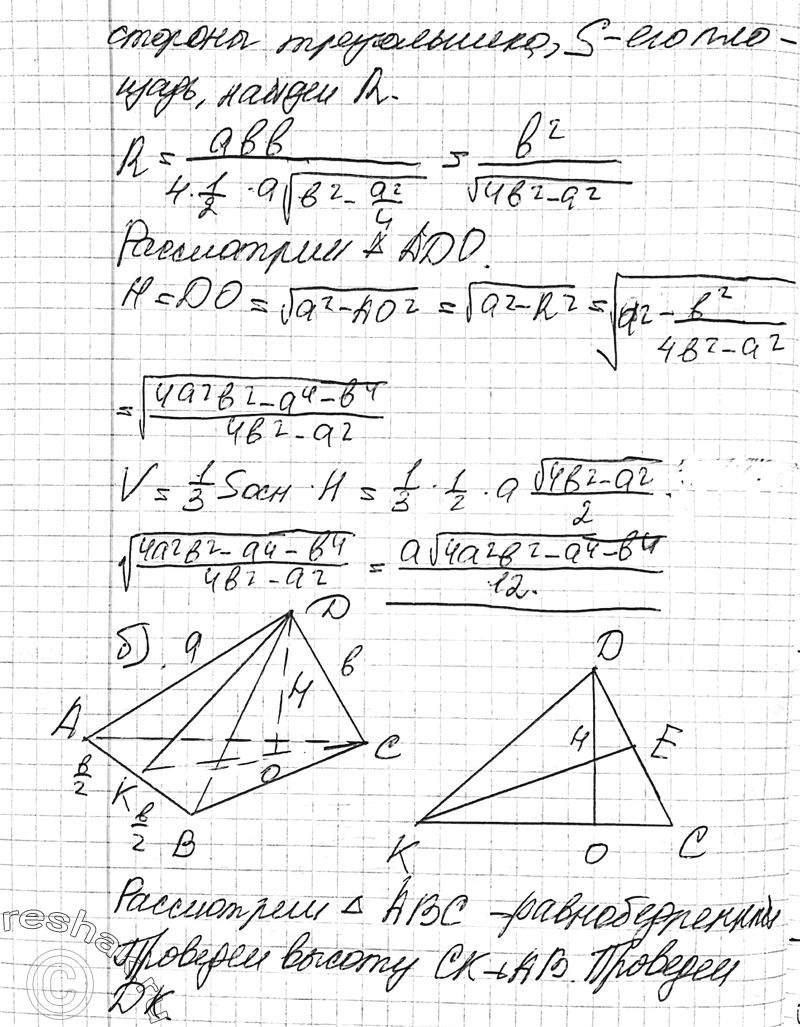 стороны треугольника, S-его пло-
щадь, найдем R.
R = abb / (4·1/2·a√(b²-a²/4)) = b² / √(4b²-a²)
Рассмотрим ∆ ADO.
H=DO = √(a²-AO²) = √(a²-R²) = √(a² - b²/(4b²-a²))
= √((4a²b²-a⁴-b⁴)/(4b²-a²))
V = 1/3 Sосн · H = 1/3 · 1/2 · a √(4b²-a²)/2 ·
√((4a²b²-a⁴-b⁴)/(4b²-a²)) = a√(4a²b²-a⁴-b⁴)/12.
б) a D b
H
A C
b/2 K O
b/2 B
D
H E
K O C
Рассмотрим ∆ ABC -равнобедренный
Проведем высоту CK⊥AB. Проведем
DK.
resha
©